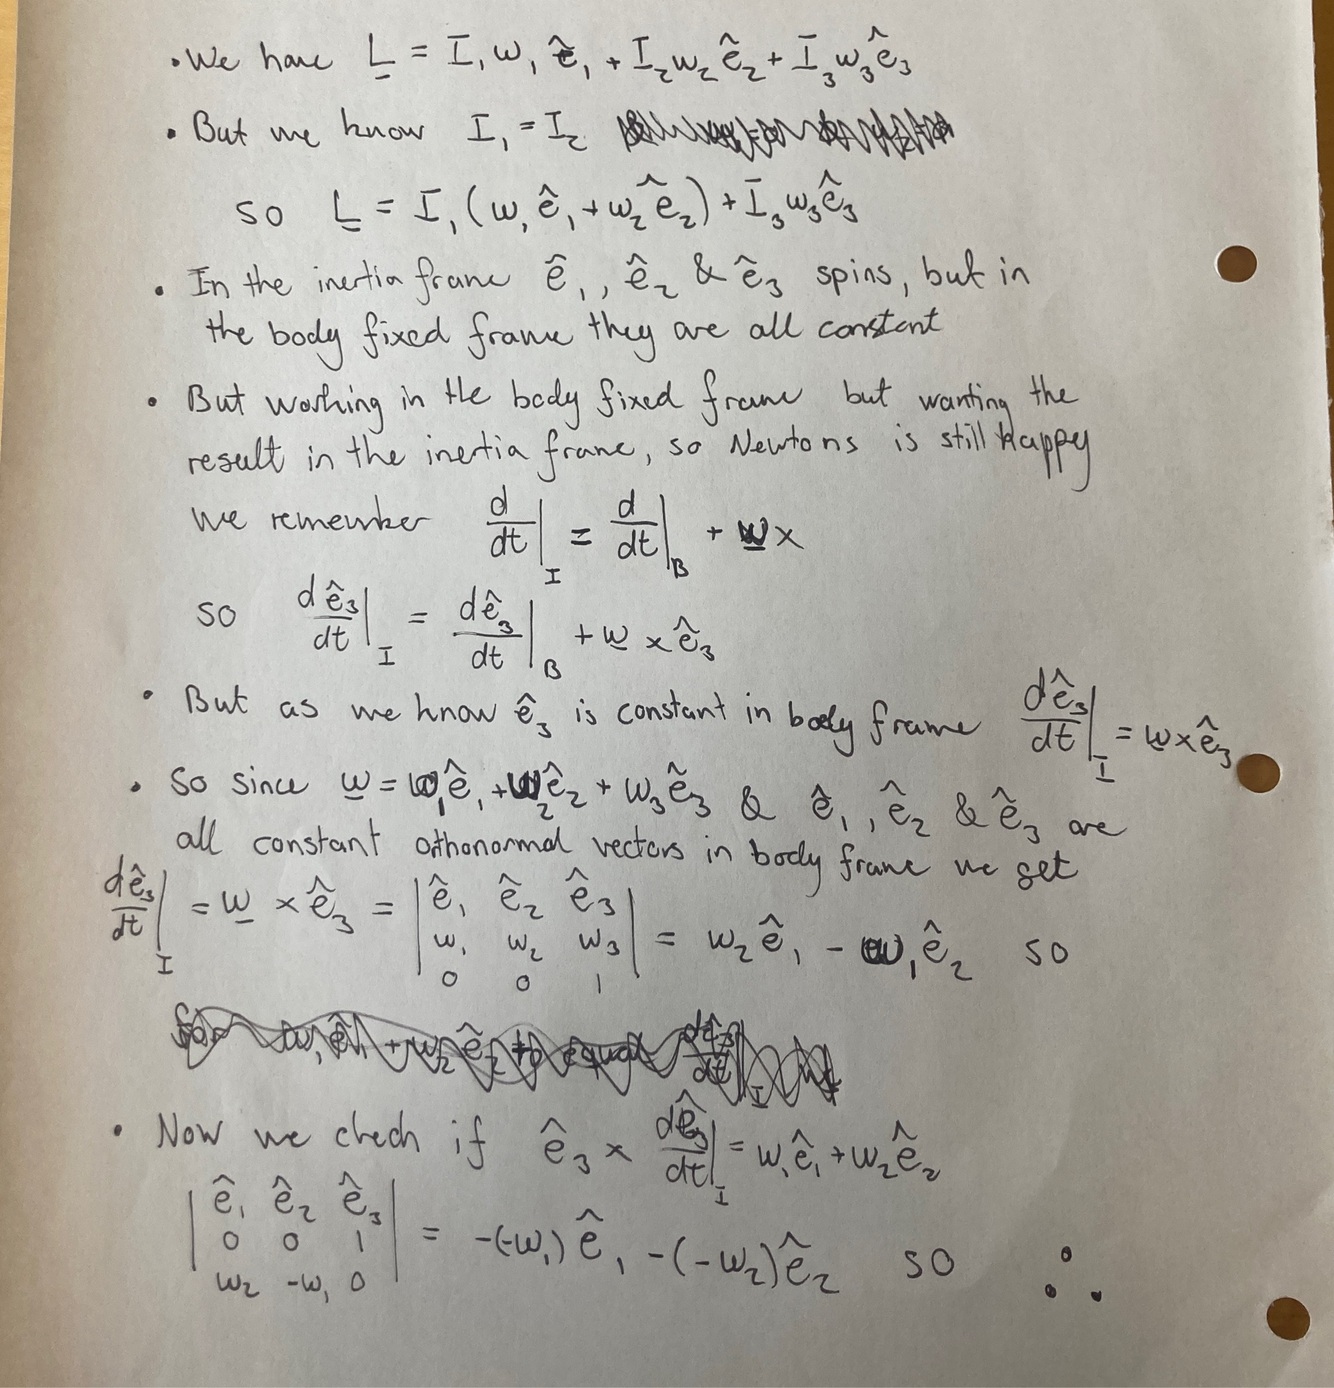 • We have L = I₁ω₁ê₁ + I₂ω₂ê₂ + I₃ω₃ê₃
• But we know I₁ = I₂
so L = I₁(ω₁ê₁ + ω₂ê₂) + I₃ω₃ê₃
• In the inertia frame ê₁, ê₂ & ê₃ spins, but in
the body fixed frame they are all constant
• But working in the body fixed frame but wanting the
result in the inertia frame, so Newtons is still happy
we remember d/dt|_I = d/dt|_B + ω ×
so dê₃/dt|_I = dê₃/dt|_B + ω × ê₃
• But as we know ê₃ is constant in body frame dê₃/dt|_I = ω × ê₃
• So since ω = ω₁ê₁ + ω₂ê₂ + ω₃ê₃ & ê₁, ê₂ & ê₃ are
all constant orthonormal vectors in body frame we get
dê₃/dt|_I = ω × ê₃ = |ê₁ ê₂ ê₃; ω₁ ω₂ ω₃; 0 0 1| = ω₂ê₁ - ω₁ê₂ so
• Now we check if ê₃ × dê₃/dt|_I = ω₁ê₁ + ω₂ê₂
|ê₁ ê₂ ê₃; 0 0 1; ω₂ -ω₁ 0| = -(-ω₁)ê₁ - (-ω₂)ê₂ so ∴